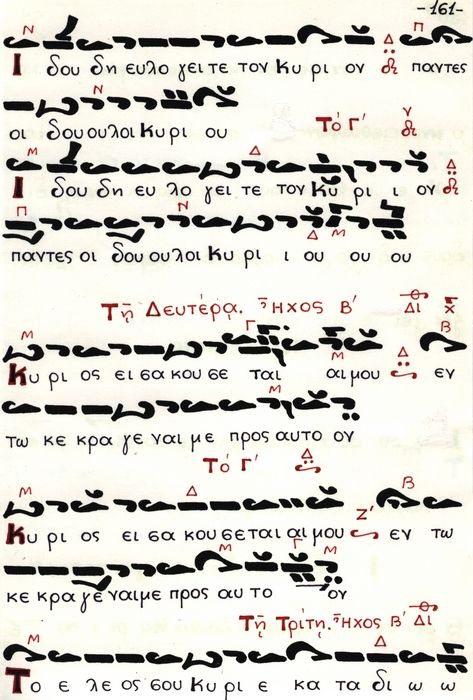 -161-
Ν Δ Π
Ι δου δη ευλο γει τε τον Κυ ρι ον παντες
Ν
οι δου ουλοι Κυρι ου Τό Γ΄
Μ Δ Δ
Ι δου δη ευ λο γει τε τον Κυ ρι ι ον
Π Ν Δ Μ
παντες οι δου ουλοι Κυρι ι ου ου ου
Τῇ Δευτέρᾳ. Ἦχος Β΄ Δι
Μ Γ Μ Δ Β
Κυ ρι ος ει σα κου σε ται αι μου εν
Μ
τω κε κρα γε ναι με προς αυτο ον
Τό Γ΄ Δ
Μ Δ Ζ΄ Β
Κυ ρι ος ει σα κου σεται αι μου εν τω
Μ Γ Μ
κε κρα γε ναι με προς αυ το ον
Τῇ Τρίτῃ. Ἦχος Β΄ Δι
Μ Δ
Το ε λε ος σου Κυ ρι ε κα τα δι ω ω